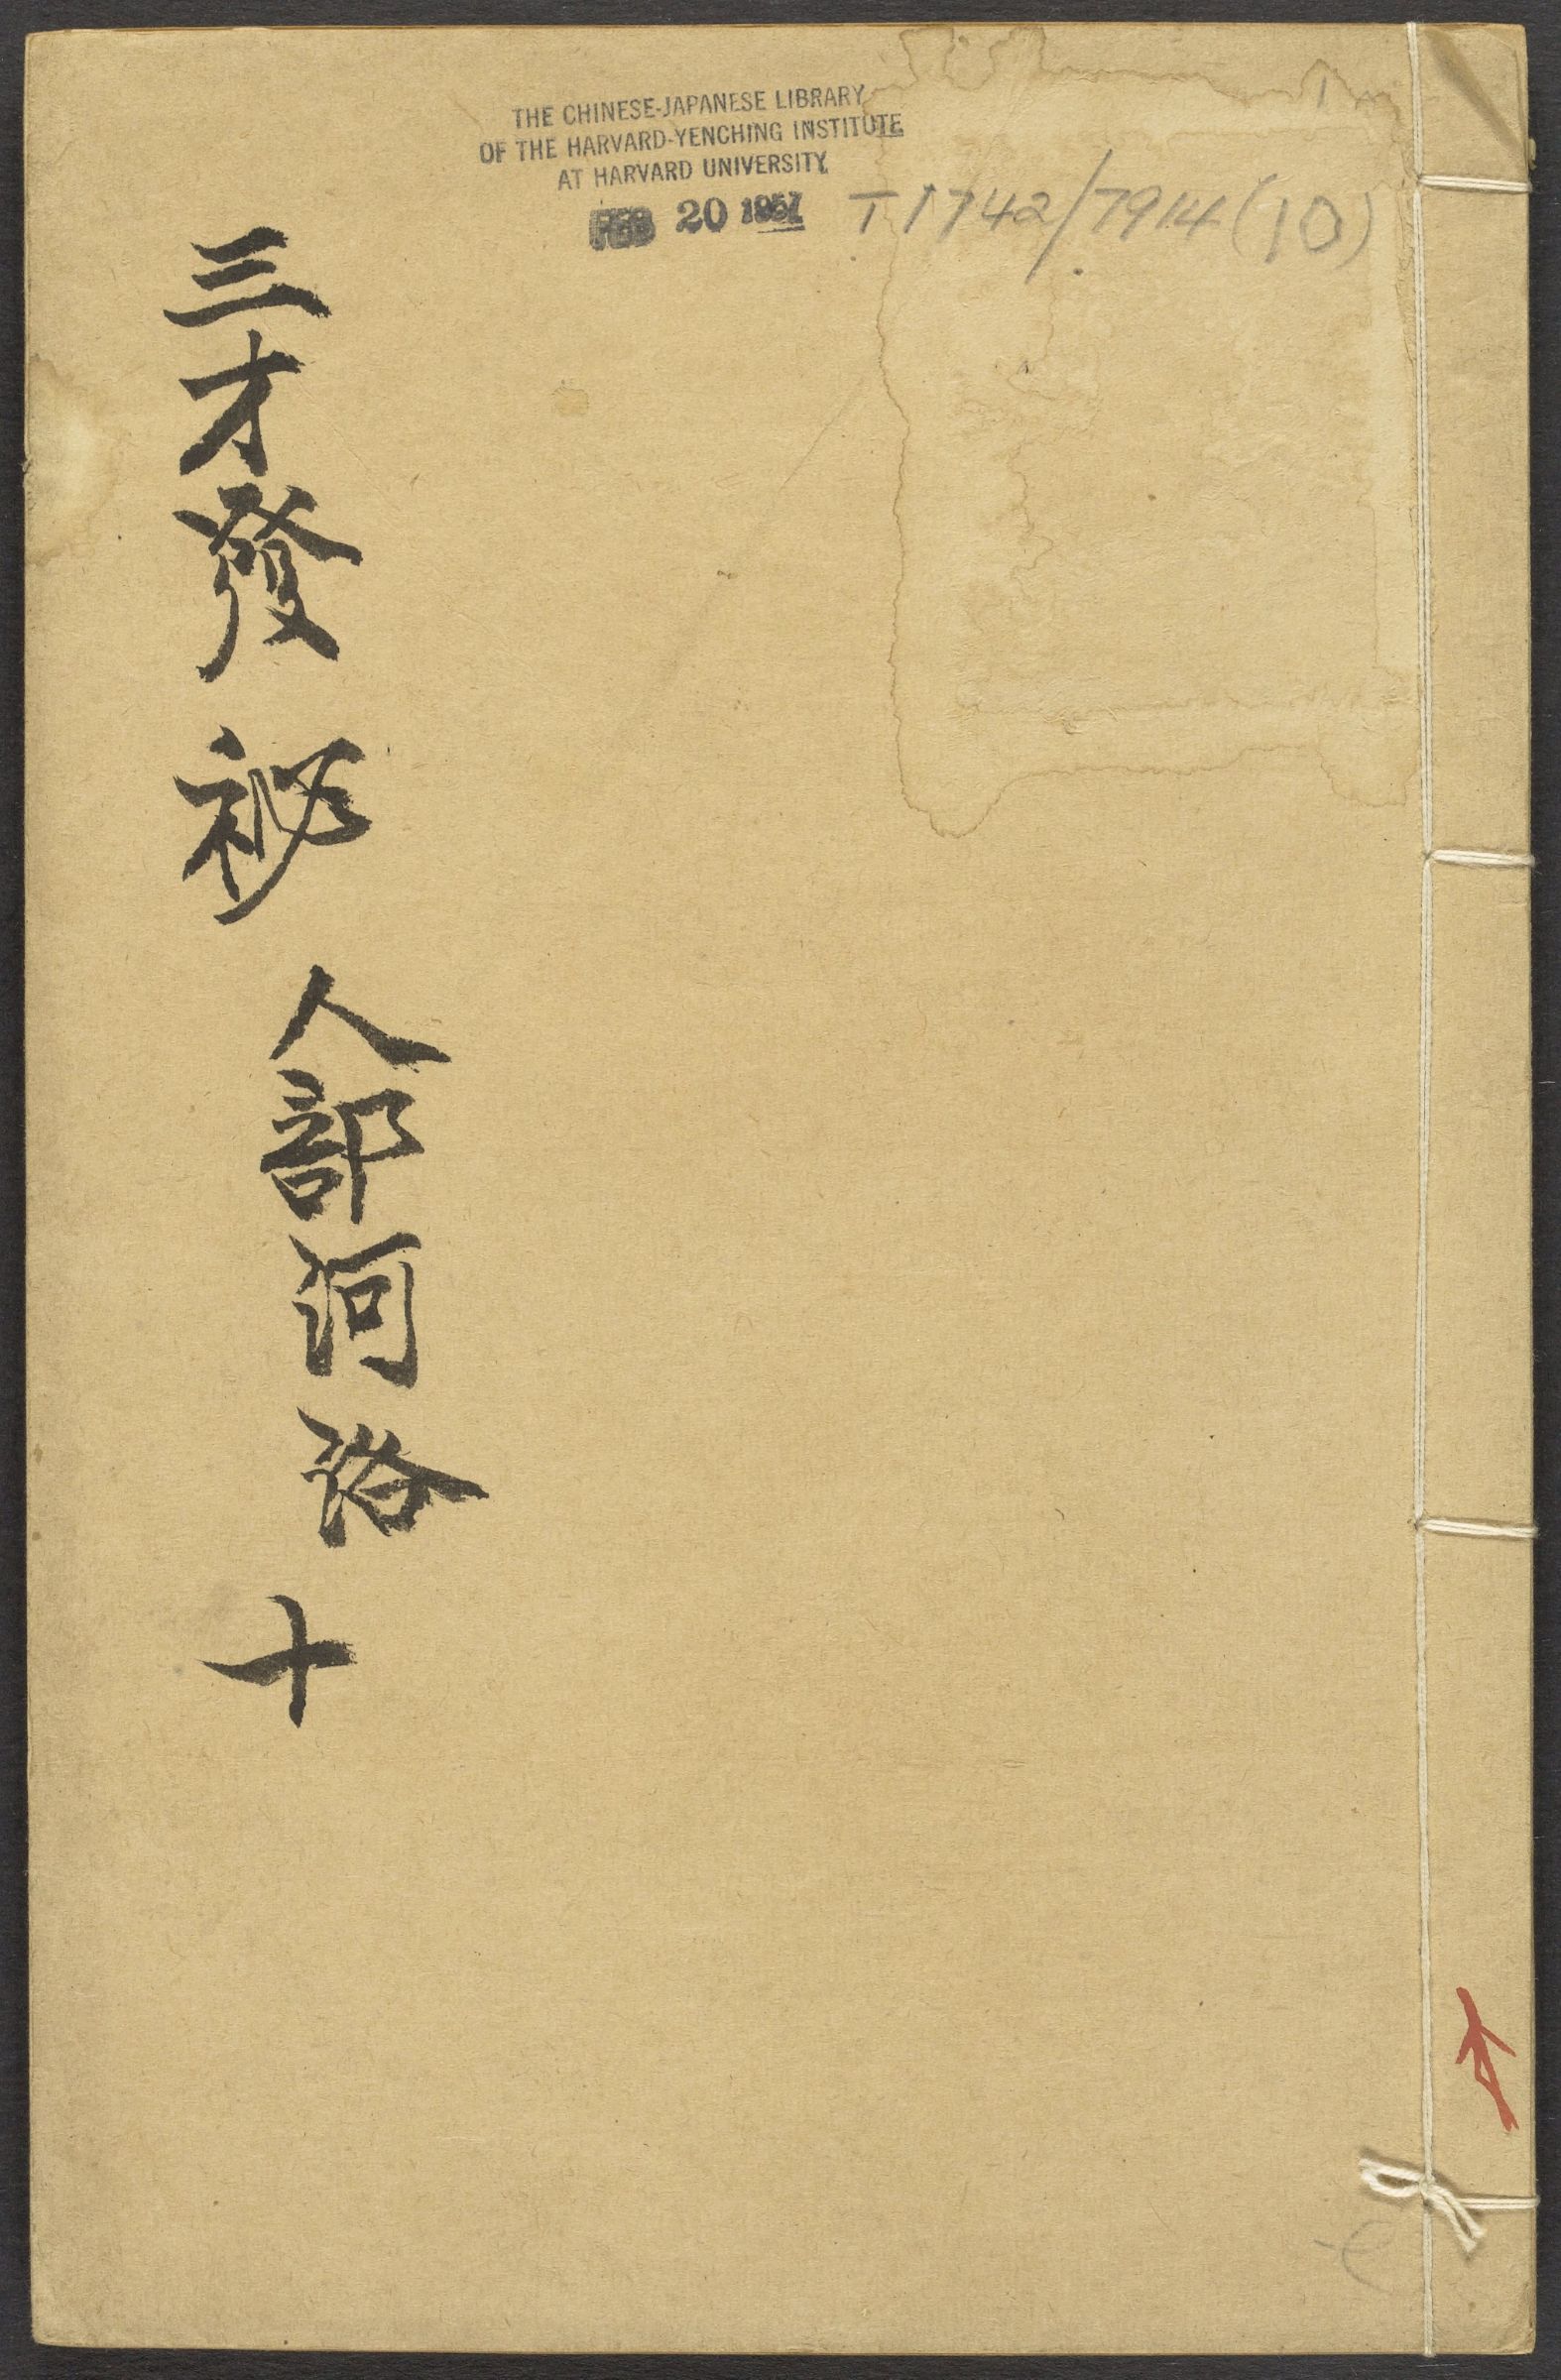 THE CHINESE-JAPANESE LIBRARY
OF THE HARVARD-YENCHING INSTITUTE
AT HARVARD UNIVERSITY
FEB 20 1957
T1742/7914(10)
三才發祕
人部河洛
十